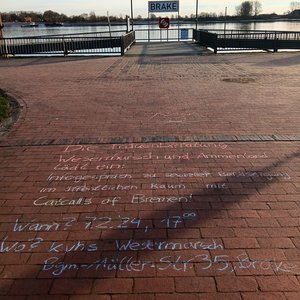 BRAKE
Die Frauenberatung
Wesermarsch und Ammerland
lädt ein:
Infogespräch zu sexueller Belästigung
im öffentlichen Raum mit
Catcalls of Bremen!
Wann? 7.2.24, 17⁰⁰
Wo? kvhs Wesermarsch
Bgm.-Müller-Str 35, Brake